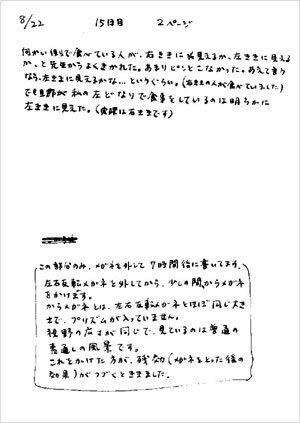 8/22 15日目 2ページ
向かい側で食べている人が、右ききに見えるか、左ききに見える
か、と先生からよくきかれた。あまりピンとこなかった。あえて言う
なら、左ききに見えるかな…というぐらい。(右ききの人が食べていました)
でも旦那が私の左どなりで食事をしているのは明らかに
左ききに見えた。(実際は右ききです)
この部分のみ、メガネを外して7時間後に書いてます。
左右反転メガネを外してから、少しの間、からメガネ
をかけます。
からメガネとは、左右反転メガネとほぼ同じ大き
さで、プリズムが入っていません。
視野の広さが同じで、見ているのは普通の
素通しの風景です。
これをかけた方が、残効(メガネをとった後の
効果)がつづくときました。